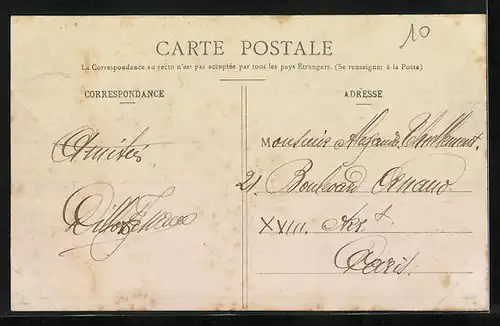 10
CARTE POSTALE
La Correspondance au recto n'est pas acceptée par tous les pays Étrangers. (Se renseigner à la Poste)
CORRESPONDANCE
ADRESSE
Amitiés
Monsieur
21. Boulevard
XVIII. Arrt
Paris.